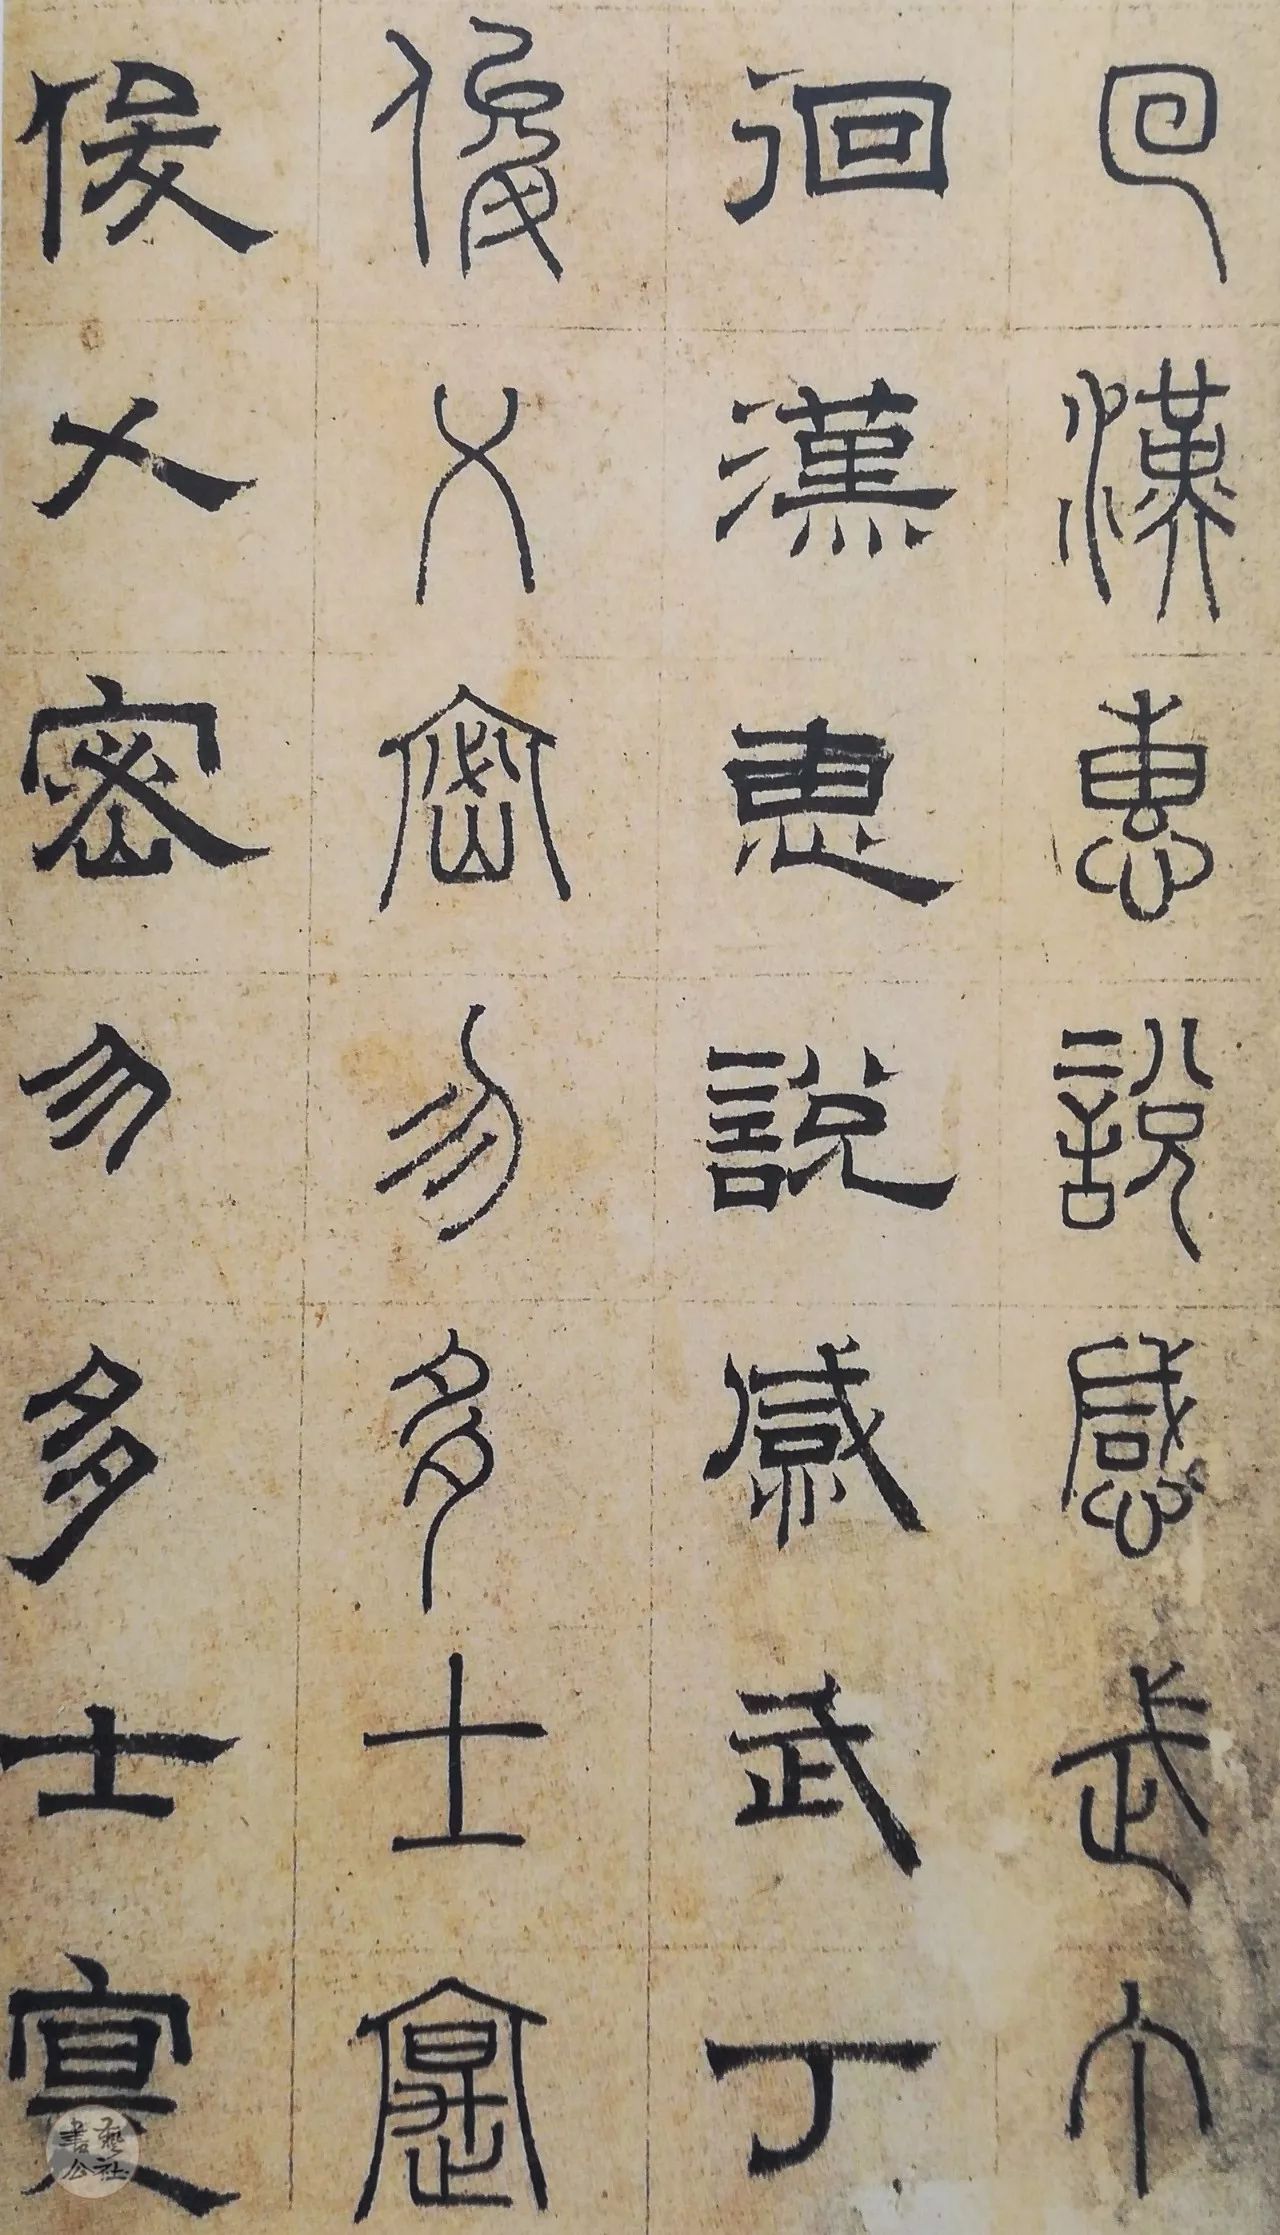 回漢惠說感武丁
徊漢惠說感武丁
俊乂密勿多士寔
俊乂密勿多士寔
書藝公社